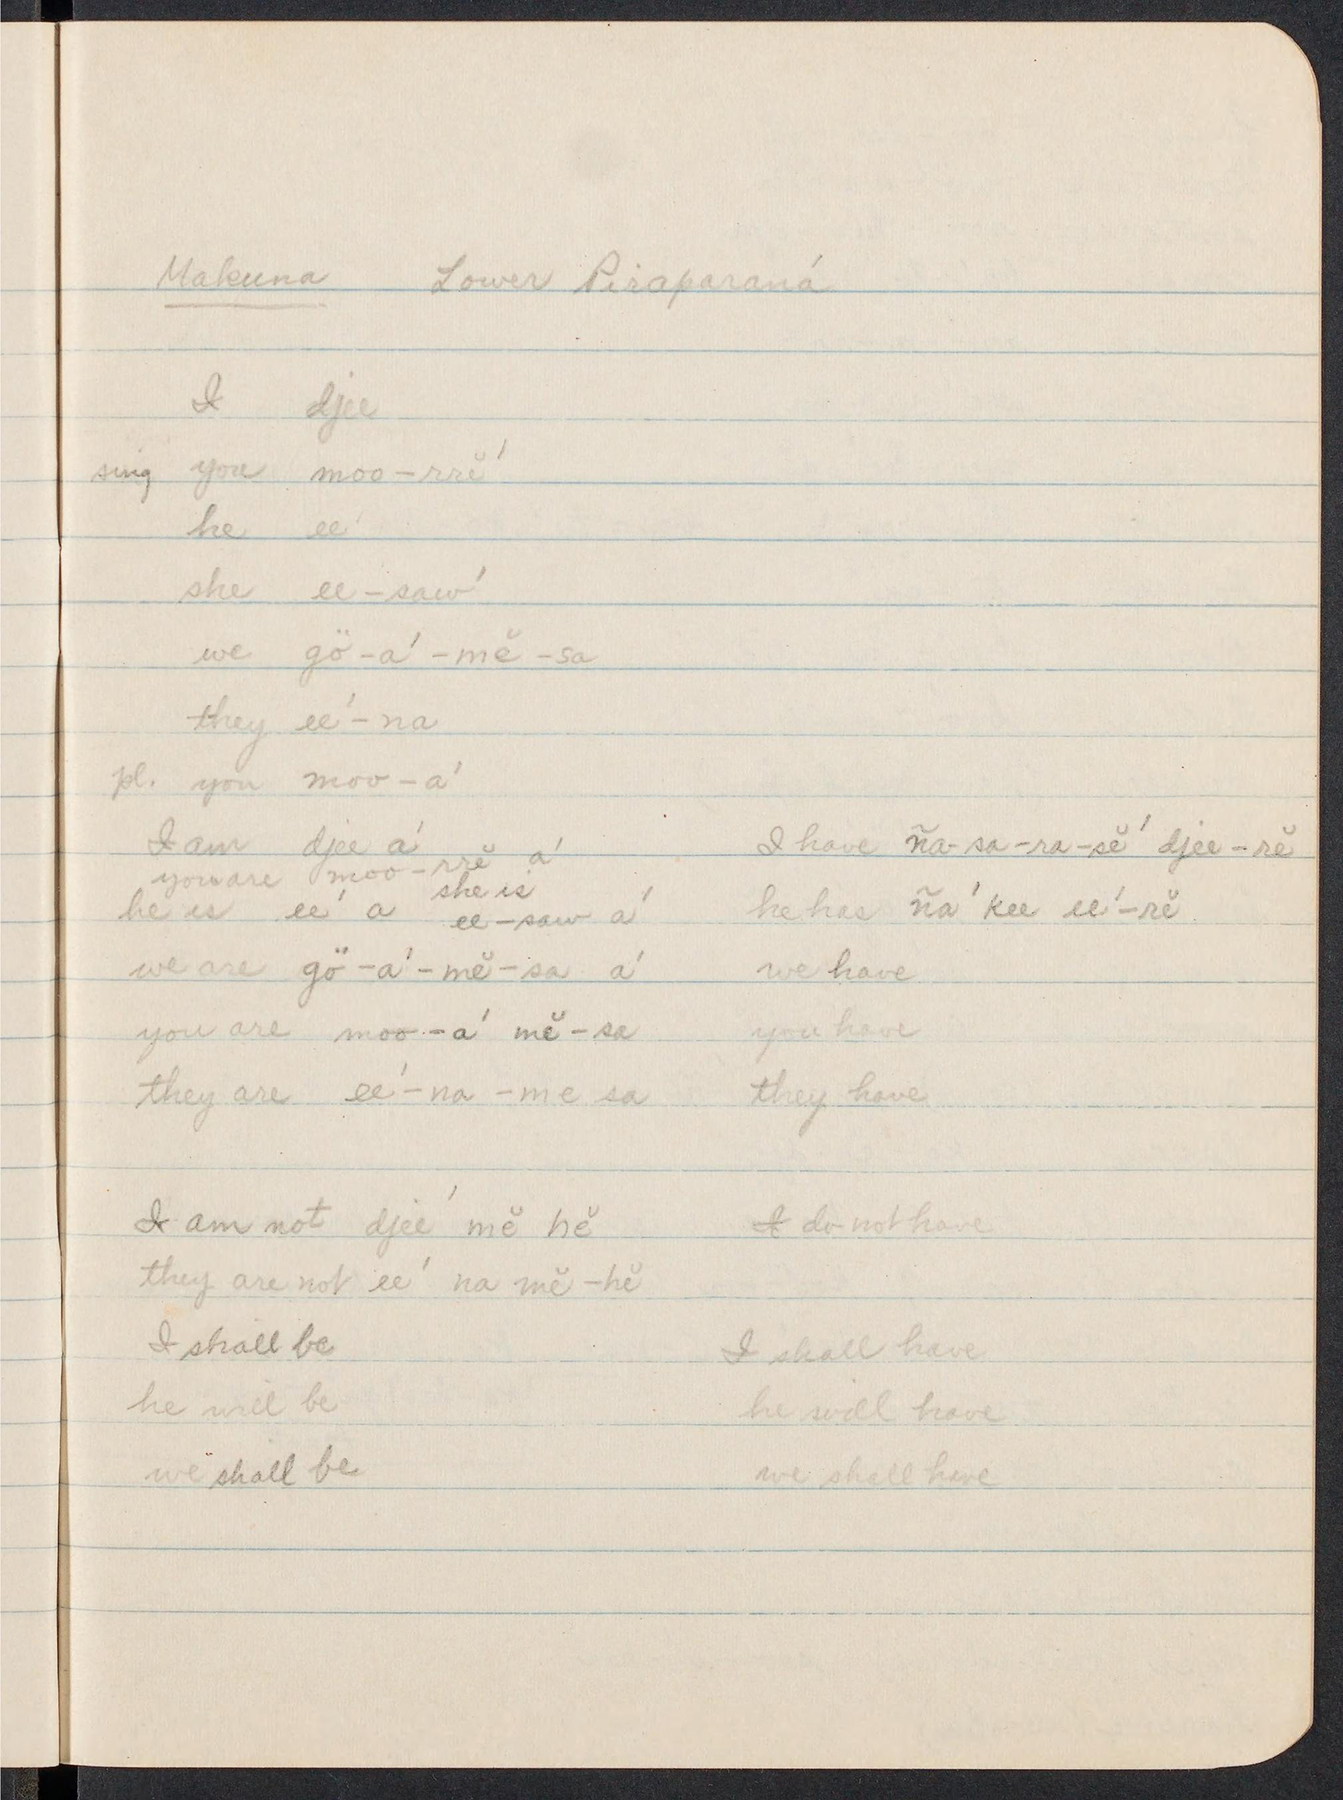 Makuna Lower Piraparaná
I djee
sing you moo-rrĕ'
he ee'
she ee-saw'
we gö-a'-mĕ-sa
they ee'-na
pl. you moo-a'
I am djee a'
you are moo-rrĕ a'
she is
he is ee' a ee-saw a'
we are gö-a'-mĕ-sa a'
you are moo-a' mĕ-sa
they are ee'-na-me sa
I have ña-sa-ra-sĕ' djee-rĕ
he has ña' kee ee'-rĕ
we have
you have
they have
I am not djee' mĕ hĕ
they are not ee' na mĕ-hĕ
I shall be
he will be
we shall be
I do not have
I shall have
he will have
we shall have